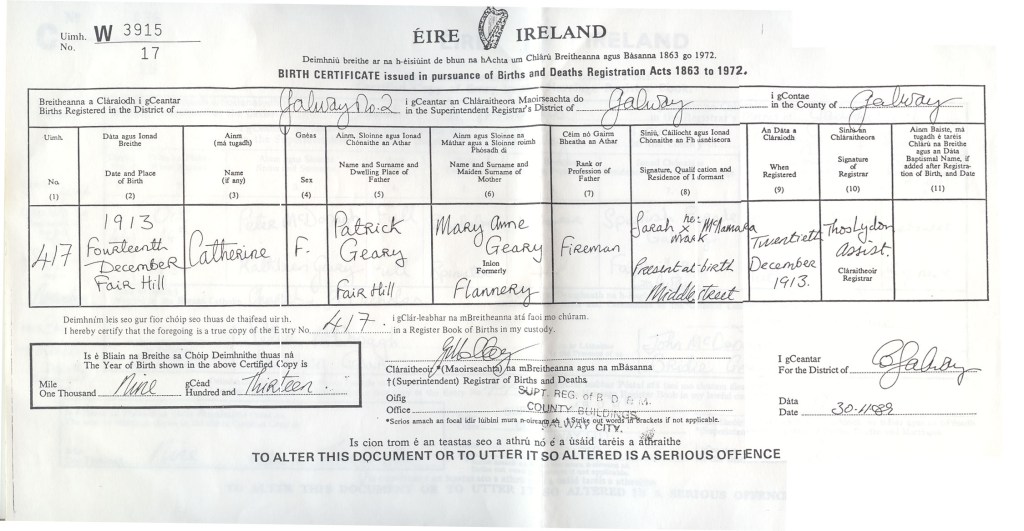 Uimh. No. W 3915
17
ÉIRE IRELAND
Deimhniú breithe ar na h-éisiúint de bhun na hAchta um Chlárú Breitheanna agus Bàsanna 1863 go 1972.
BIRTH CERTIFICATE issued in pursuance of Births and Deaths Registration Acts 1863 to 1972.
Breitheanna a Cláraíodh i gCeantar
Births Registered in the District of Galway No. 2
i gCeantar an Chláraitheora Maoirseachta do
in the Superintendent Registrar's District of Galway
i gContae
in the County of Galway
Uimh. No. (1)
Dáta agus Ionad Breithe
Date and Place of Birth
(2)
Ainm (má tugadh)
Name (if any)
(3)
Gnéas
Sex
(4)
Ainm, Sloinne agus Ionad Chónaithe an Athar
Name and Surname and Dwelling Place of Father
(5)
Ainm agus Sloinne na Máthar agus a Sloinne roimh Phósadh di
Name and Surname and Maiden Surname of Mother
(6)
Céim nó Gairm Bheatha an Athar
Rank or Profession of Father
(7)
Síniú, Cáilíocht agus Ionad Chónaithe an Fhaisnéiseora
Signature, Qualification and Residence of Informant
(8)
An Dáta a Cláraíodh
When Registered
(9)
Síniú an Chláraitheora
Signature of Registrar
(10)
Ainm Baiste, má tugadh é taréis Chlárú na Breithe agus an Dáta
Baptismal Name, if added after Registration of Birth, and Date
(11)
417
1913
Fourteenth
December
Fair Hill
Catherine
F.
Patrick
Geary
Fair Hill
Mary Anne
Geary
Iníon
Formerly
Flannery
Fireman
Sarah her x mark McNamara
Present at birth
Middle street
Twentieth
December
1913.
Thos Lydon
Assist.
Cláraitheoir
Registrar
Deimhním leis seo gur fíor chóip seo thuas de thaifead uimh. i gClár-leabhar na mBreitheanna atá faoi mo chúram.
I hereby certify that the foregoing is a true copy of the Entry No. 417. in a Register Book of Births in my custody.
Is é Bliain na Breithe sa Chóip Deimhnithe thuas ná
The Year of Birth shown in the above Certified Copy is
Míle gCéad
One Thousand Nine Hundred and Thirteen.
Cláraitheoir *(Maoirseachta) na mBreitheanna agus na mBàsanna
†(Superintendent) Registrar of Births and Deaths
Oifig
Office
SUPT. REG. of B. D. & M.
COUNTY BUILDINGS,
GALWAY CITY.
*Scrios amach an focal idir lúibíní mura n-oireann sé. †Strike out words in brackets if not applicable.
i gCeantar
For the District of Galway
Dàta
Date 30-11-89
Is cion trom é an teastas seo a athrú nó é a úsáid taréis a athraithe
TO ALTER THIS DOCUMENT OR TO UTTER IT SO ALTERED IS A SERIOUS OFFENCE